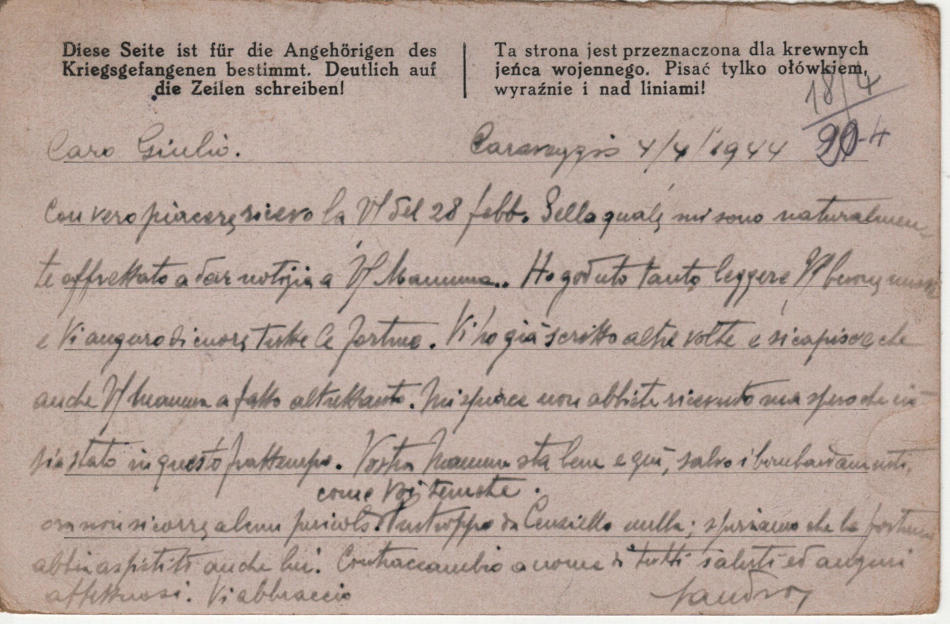 Diese Seite ist für die Angehörigen des
Kriegsgefangenen bestimmt. Deutlich auf
die Zeilen schreiben!
Ta strona jest przeznaczona dla krewnych
jeńca wojennego. Pisać tylko ołówkiem,
wyraźnie i nad liniami!
18/4
20-4
Caro Giulio. 4/4/1944
Con vero piacere ricevo la Vs del 28 febb. Della quale mi sono naturalmen-
te affrettato a dar notizia a Vs Mamma. Ho goduto tanto leggere Vs buone
e Vi auguro di cuore tutte le fortune. Vi ho già scritto altre volte e si capisce che
anche Vs Mamma a fatto altrettanto. Mi spiace non abbiate ricevuto ma spero che
sia stato in questo frattempo. Vostra Mamma sta bene e qui, salvo i bombardamenti,
come Voi temete.
non si corre alcun pericolo. Purtroppo da nulla; speriamo che la fortuna
abbia anche lui. Contraccambio a nome di tutti saluti ed auguri
affettuosi. Vi abbraccio Sandro